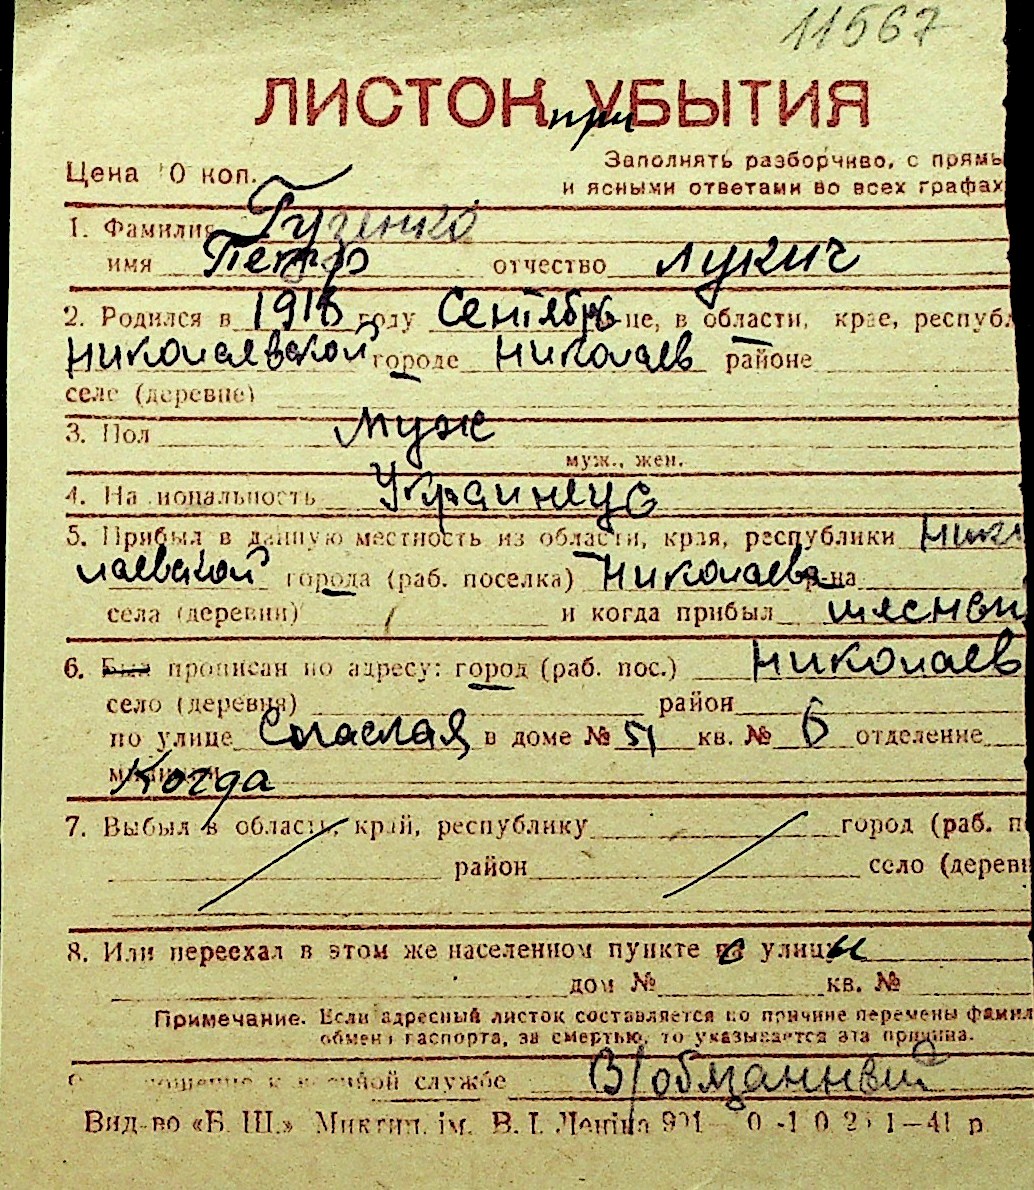 11567
ЛИСТОК при УБЫТИЯ
Цена 10 коп.
Заполнять разборчиво, с прямы
и ясными ответами во всех графах
1. Фамилия Гузенко
имя Петр отчество Лукич
2. Родился в 1918 году Сентябрь не, в области, крае, республ
Николаевской городе Николаев районе
селе (деревне)
3. Пол муж
муж., жен.
4. Национальность Украинец
5. Прибыл в данную местность из области, края, республики Нико
лаевской города (раб. поселка) Николаева р-на
села (деревни) и когда прибыл
6. Был прописан по адресу: город (раб. пос.) Николаев
село (деревня) район
по улице в доме № 51 кв. № 6 отделение
милиции Когда
7. Выбыл в область, край, республику город (раб. п
район село (деревн
8. Или переехал в этом же населенном пункте с улицы
дом № кв. №
Примечание. Если адресный листок составляется по причине перемены фамил
обмена паспорта, за смертью, то указывается эта причина.
военной службе В/обязанный
Вид-во «Б. Ш.» Миктип. ім. В. І. Леніна